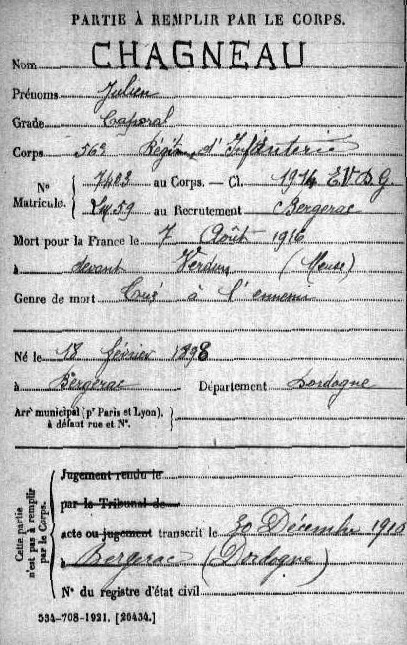 PARTIE À REMPLIR PAR LE CORPS.
Nom CHAGNEAU
Prénoms Julien
Grade Caporal
Corps 56e Régt. d'Infanterie
N° Matricule. { 7403 au Corps. — Cl. 1914 E.V.D.G.
59 au Recrutement Bergerac
Mort pour la France le 7 Août 1916
à devant Verdun (Meuse)
Genre de mort Tué à l'ennemi
Né le 18 février 1898
à Bergerac Département Dordogne
Arrt municipal (pr Paris et Lyon),
à défaut rue et N°.
Cette partie n'est pas à remplir par le Corps.
Jugement rendu le
par le Tribunal de
acte ou jugement transcrit le 30 Décembre 1916
à Bergerac (Dordogne)
N° du registre d'état civil
534-708-1921. [26434.]